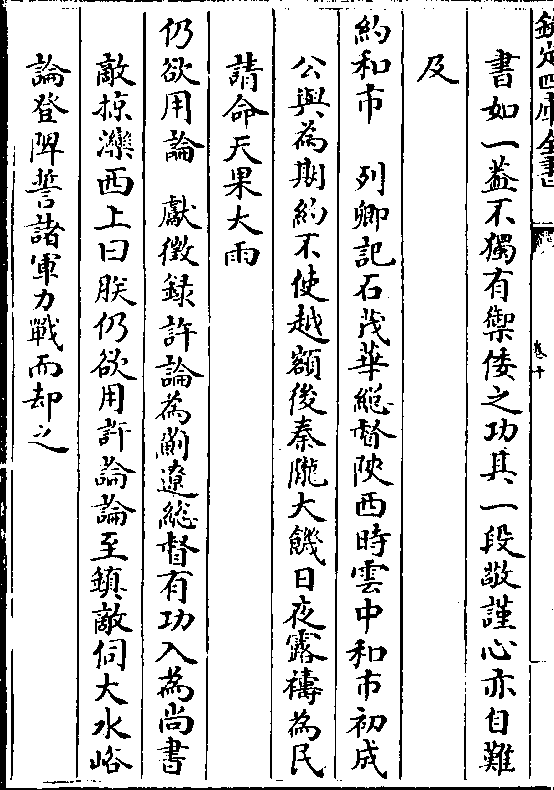 欽定四庫全書
卷十
書如一葢不獨有禦倭之功其一段敬謹心亦自難
及
約和市　列卿記石茂華總督陜西時雲中和市初成
公與為期約不使越額後秦隴大饑日夜露禱為民
請命天果大雨
仍欲用論　獻徵録許論為薊遼總督有功入為尚書
敵掠灤西上曰朕仍欲用許論論至鎮敵伺大水峪
論登陴誓諸軍力戰而却之